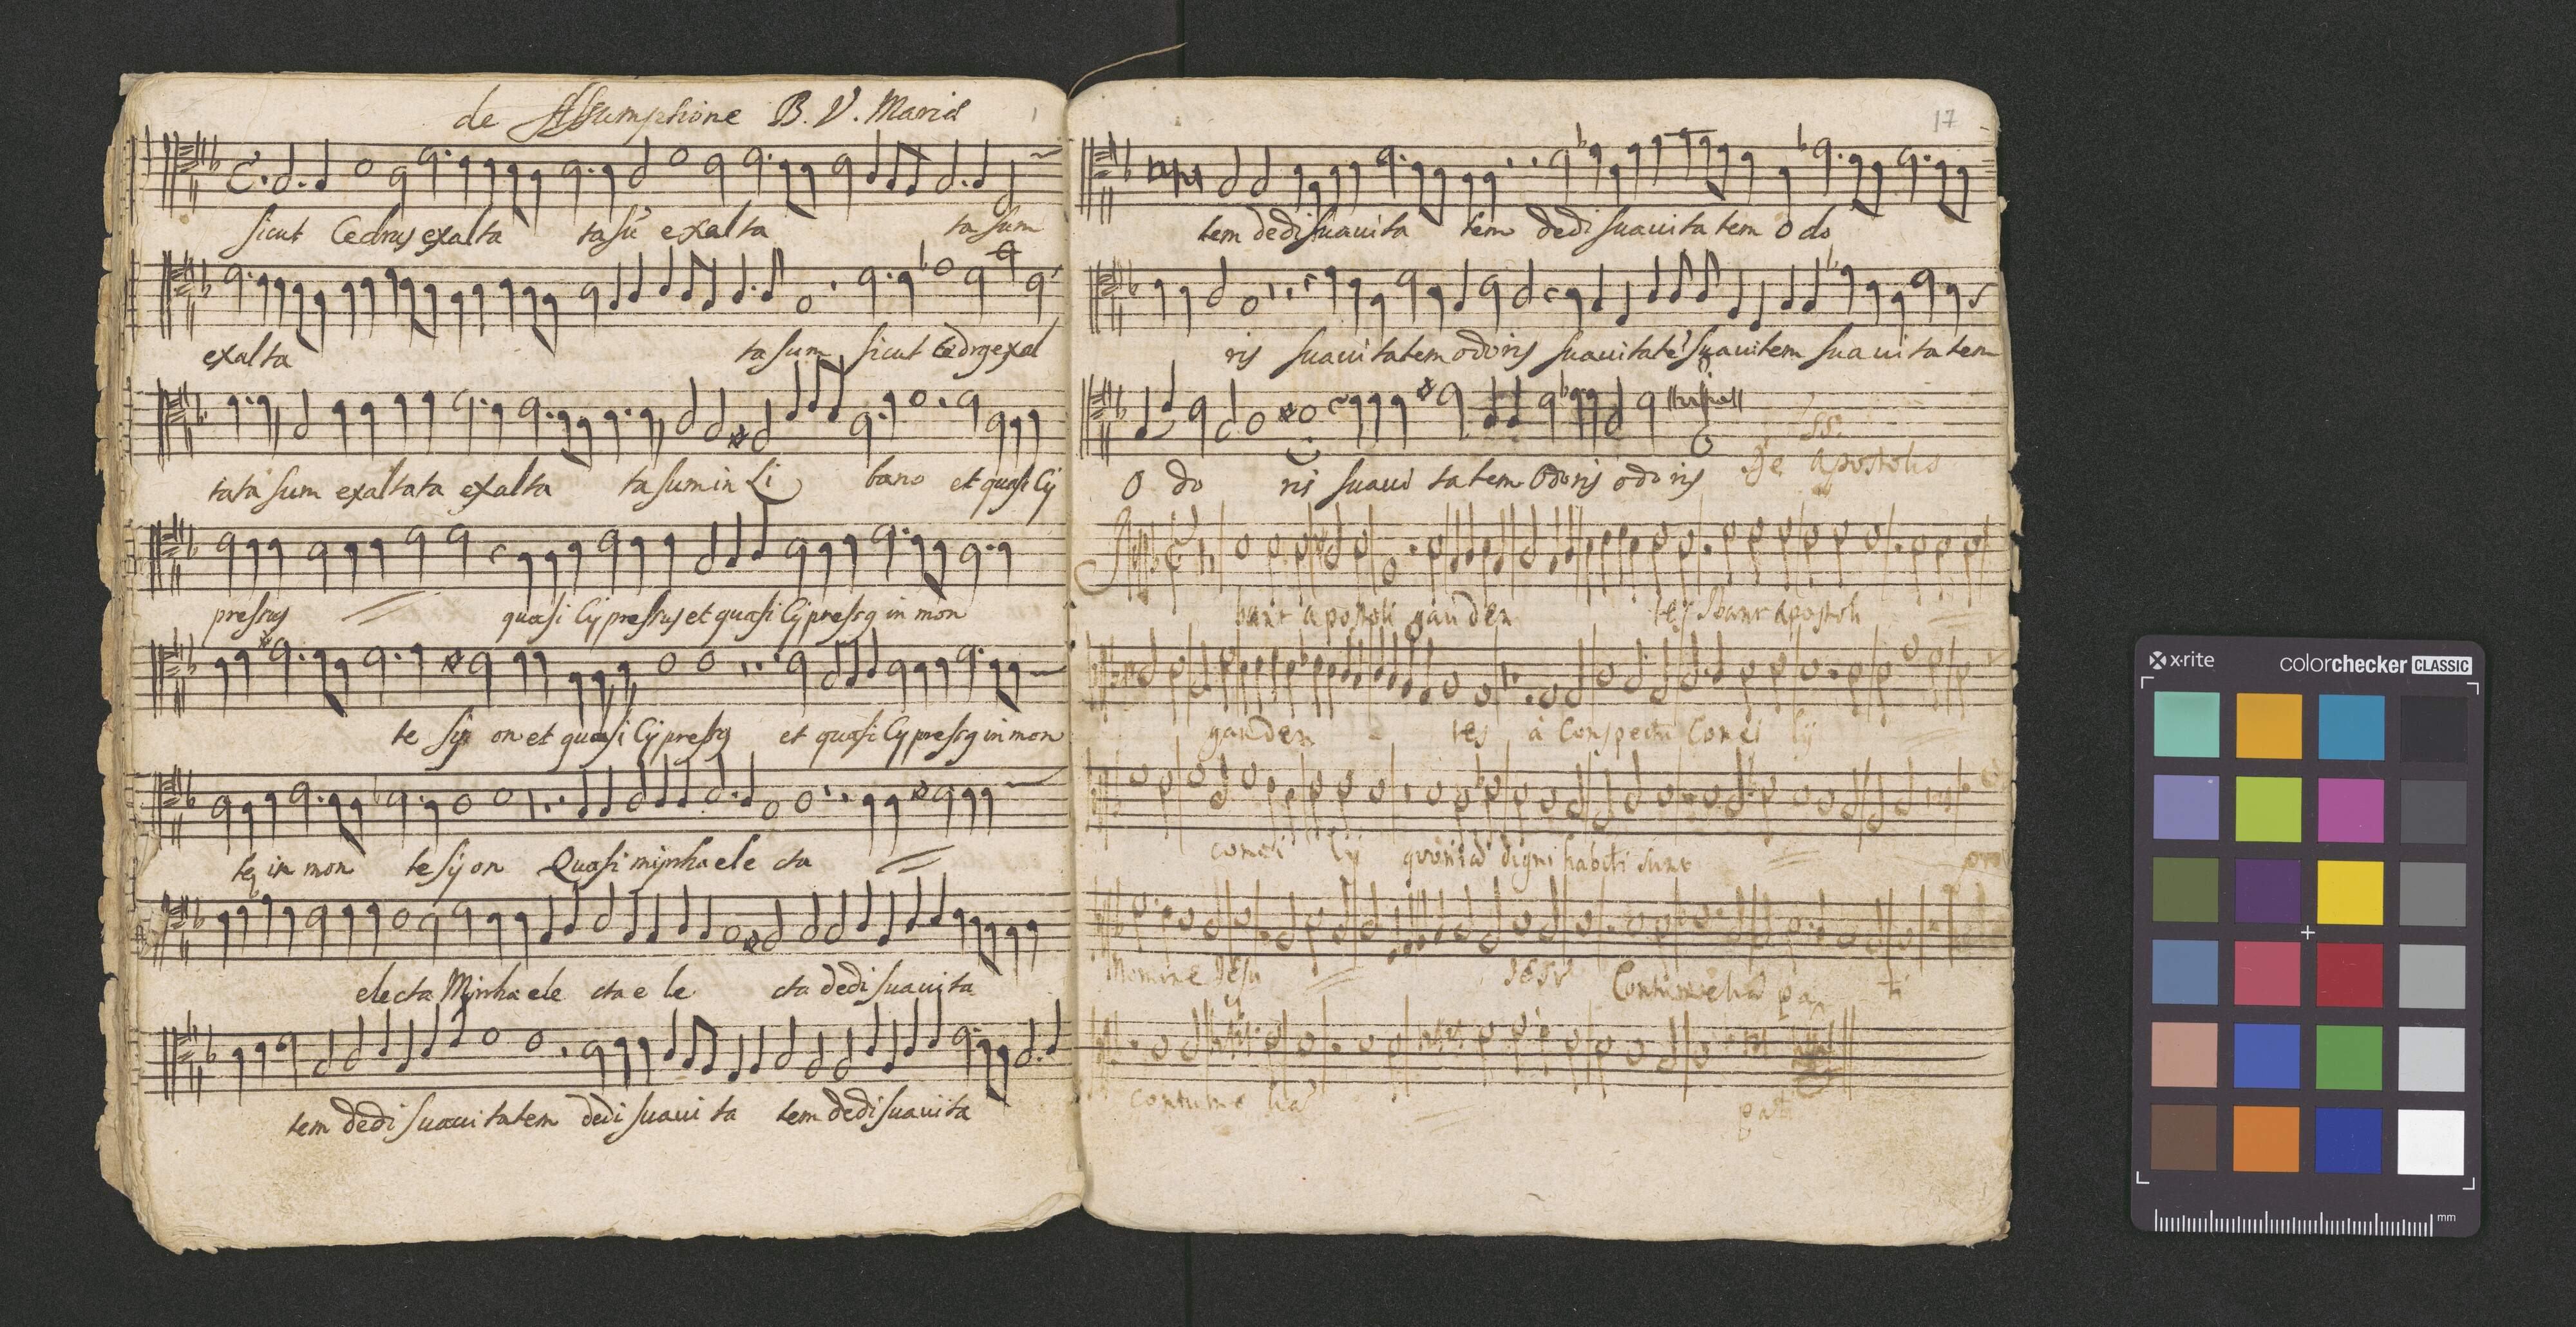 de Assumptione B. V. Mariæ
sicut Cedrus exalta ta sū exalta ta sum
exalta ta sum sicut Cedrꝯ exal
tata sum exaltata exalta ta sum in Li bano et quasi Cy
pressus quasi Cypressus et quasi Cypressꝯ in mon
te syon et quasi Cypressꝯ et quasi Cypressꝯ in mon
te in mon te syon Quasi mirrha ele cta
electa Mirrha ele cta e le cta dedi suauita
tem dedi suauitatem dedi suaui ta tem dedi suauita
17
tem dedi suauita tem dedi suauita tem o do
ris suauitatem odoris suauitatē suauitem suauitatem
O do ris suaui tatem Odoris odoris
SS.
De Apostolis
bant apostoli gau den tes Ibant apostoli
gauden - tes à Conspectu Conci lÿ
conci lÿ quoniā digni habiti sunt pro
Nomine Jesu JESV Contumeliā pa ti
contume liā pati
x-rite
colorchecker CLASSIC
mm